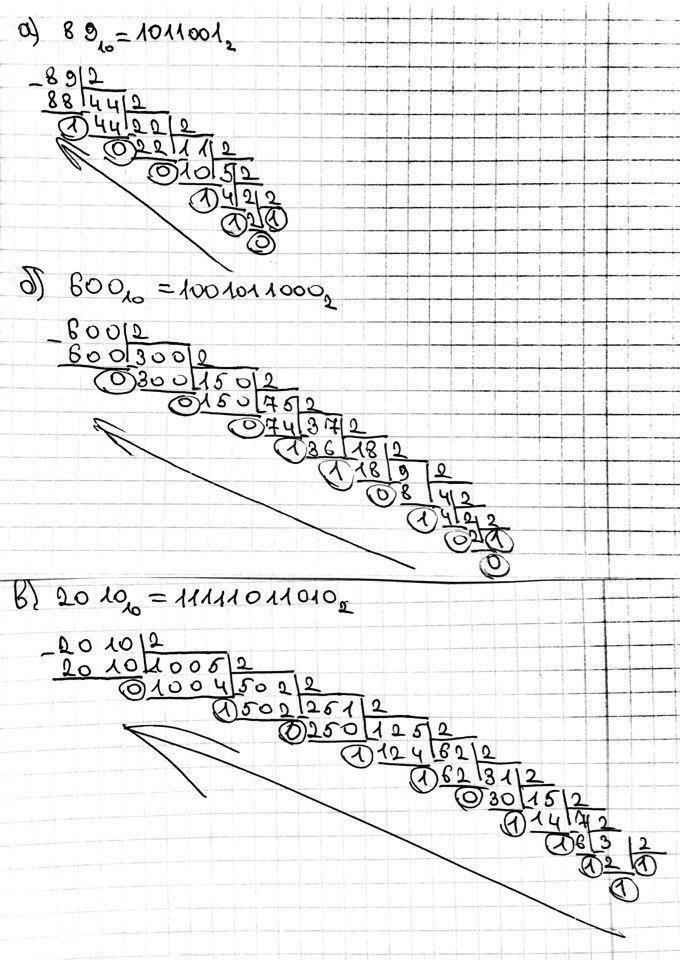 а) 89₁₀=1011001₂
-89 2
88 44 2
1 44 22 2
0 22 11 2
0 10 5 2
1 4 2 2
1 2 1
0
б) 600₁₀=1001011000₂
-600 2
600 300 2
0 300 150 2
0 150 75 2
0 74 37 2
1 36 18 2
1 18 9 2
0 8 4 2
1 4 2 2
0 2 1
0
в) 2010₁₀=11111011010₂
-2010 2
2010 1005 2
0 1004 502 2
1 502 251 2
0 250 125 2
1 124 62 2
1 62 31 2
0 30 15 2
1 14 7 2
1 6 3 2
1 2 1
1